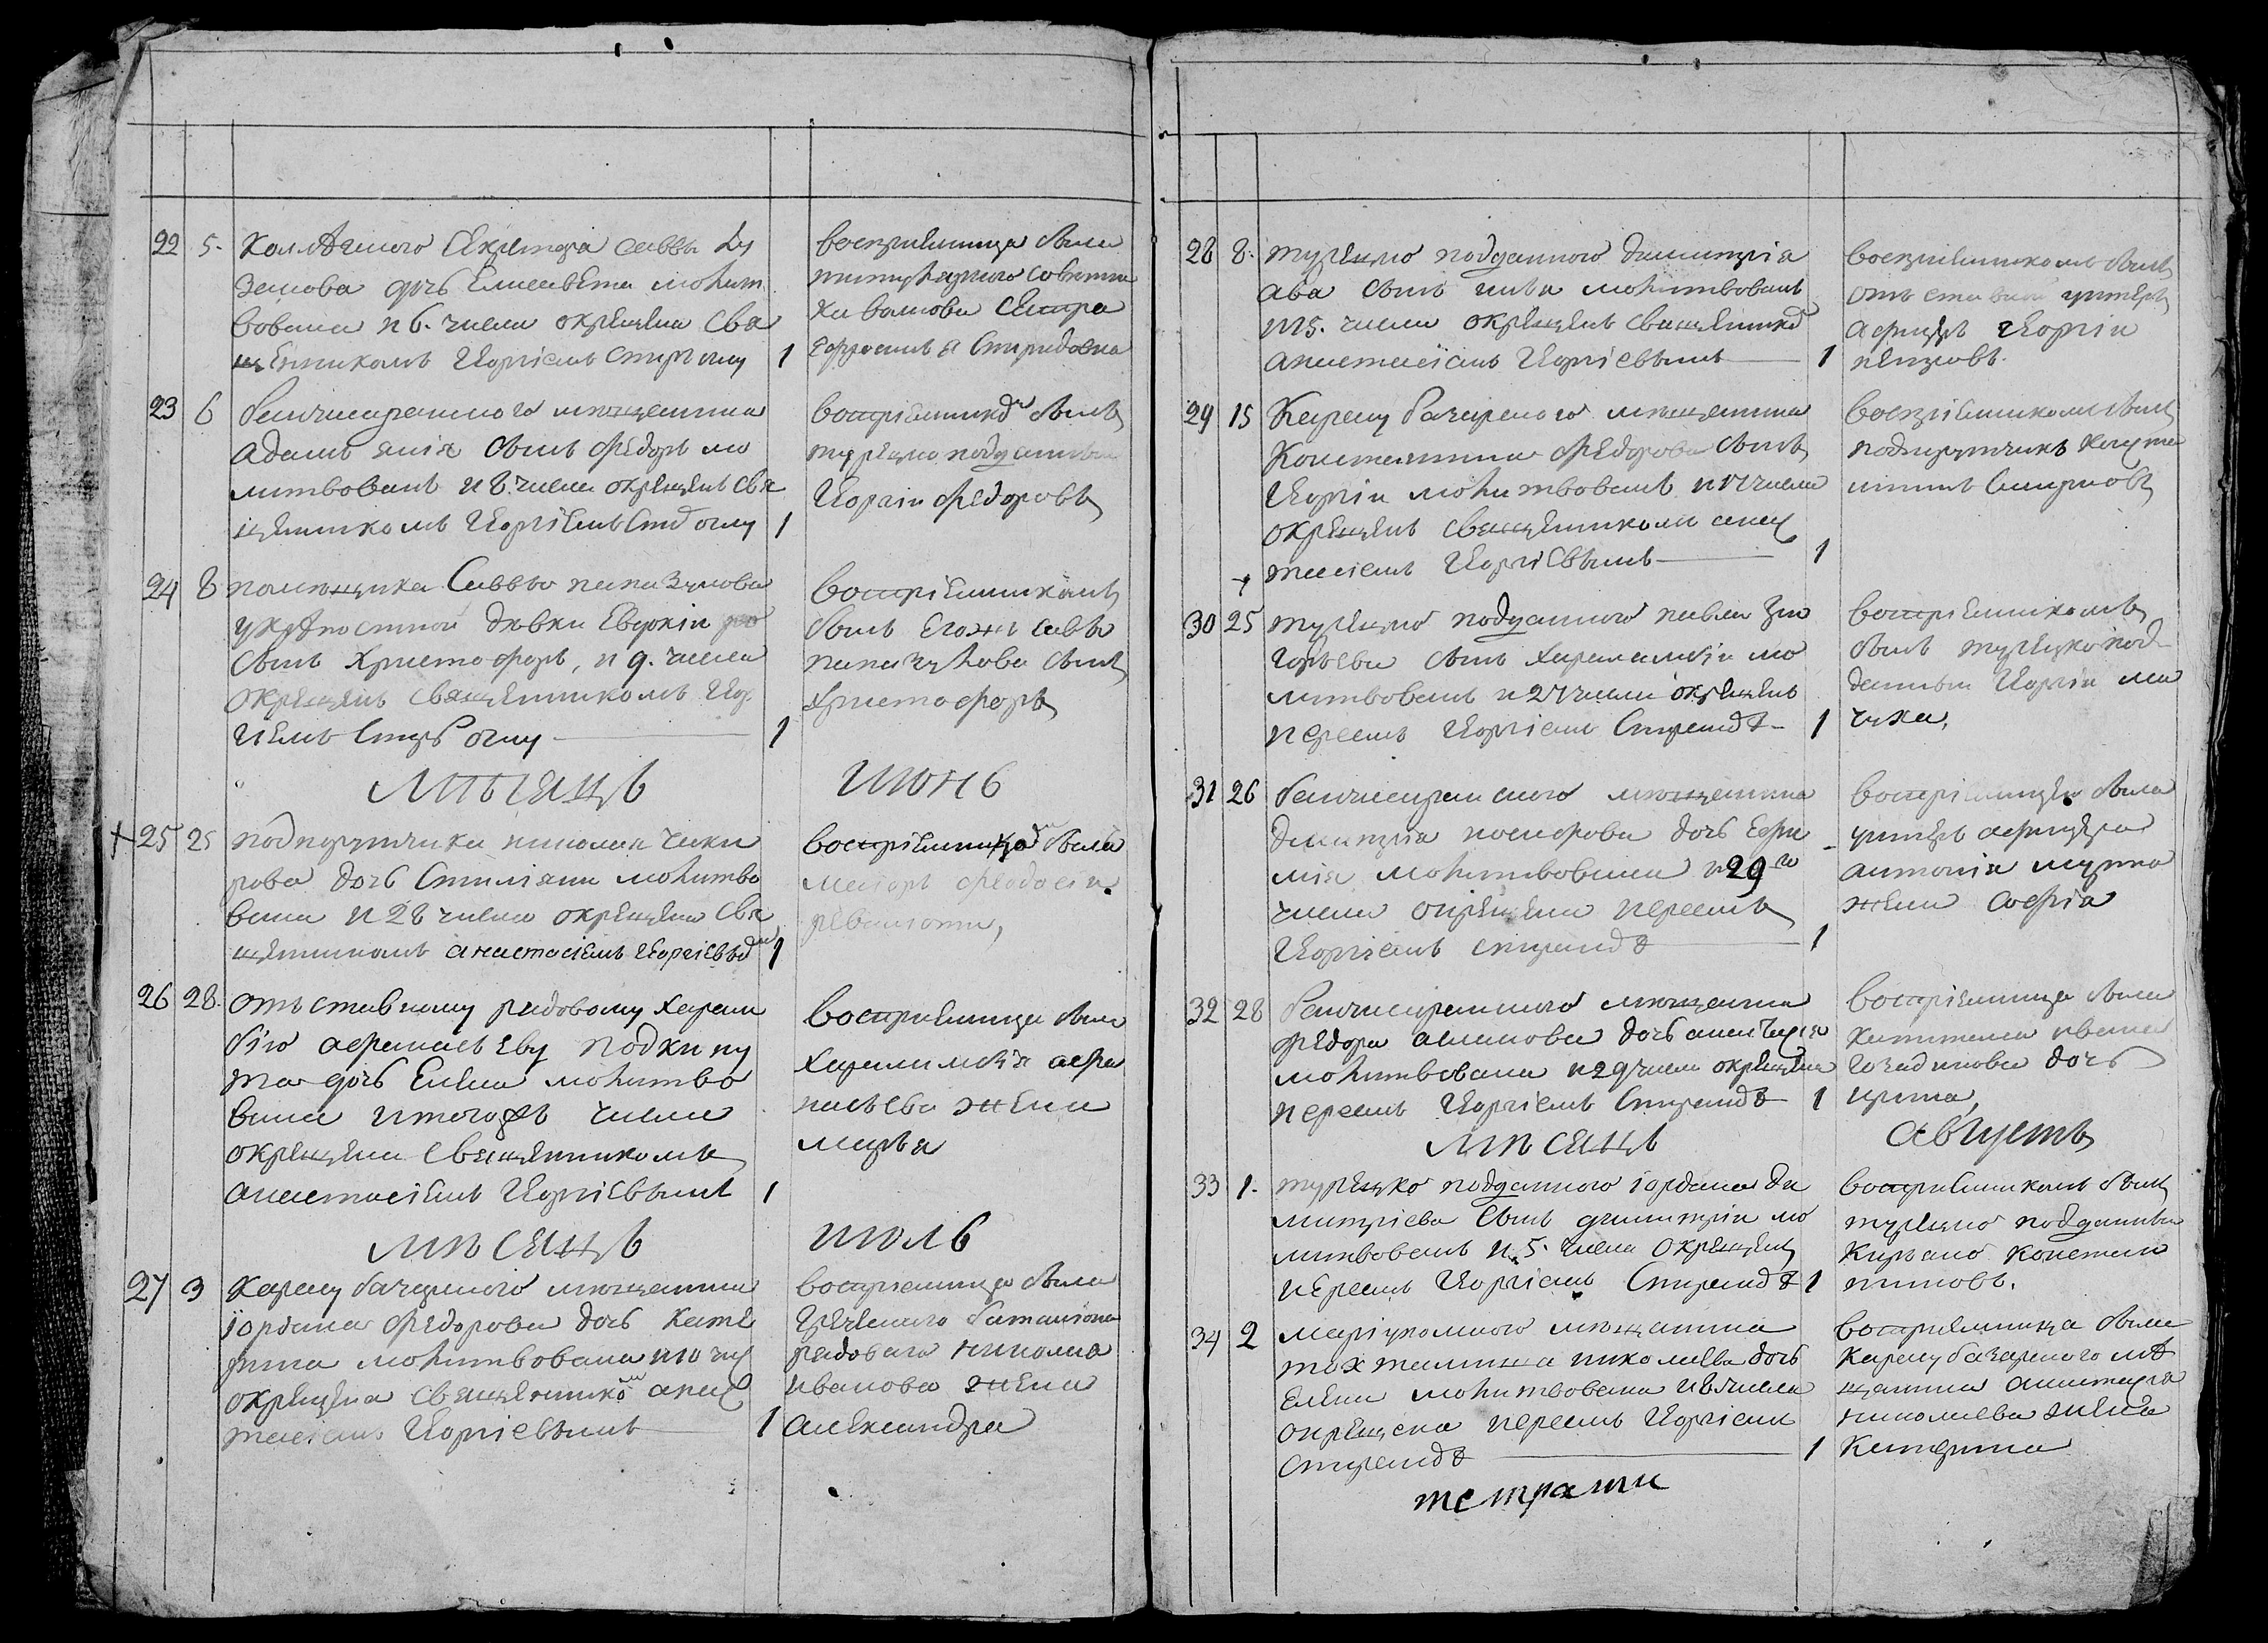 22 5. Коллежского Секретаря саввы ду
земова дочь Елисавета молит
вована и 6. числа окрещена Свя
щенникомъ Георгіемъ Спир оглу 1
восприемница была
титулярного советни
Хавалова Сестра
Ефросинья Спиридовна
23 6 балчисарайского мещанина
адамъ Сынъ Федоръ мо
литвованъ и 8. числа окрещенъ Свя
щенникомъ Георгіемъ Спи оглу 1
воспріемнико былъ
турецко подданный
Георгіи Федоровъ
24 8 помещика Саввы папазулова
у крепостной девки Евдокіи
Сынъ Христофоръ, и 9. числа
окрещенъ Священникомъ Геор
гіемъ Спир оглу 1
воспріемникомъ
былъ Егожъ саввы
папазулова Сынъ
Христофоръ
месяцъ июнь
25 25 подпорутчика николая чики
рова дочь Стилияни молитво
вана и 28 числа окрещена Свя
щенникомъ анастасіемъ Георгіевы 1
воспріемнико была
маіоръ Феодосіи
ревалиоти,
26 28. отъставному рядовому Харалам
бію афанасьеву подкину
та дочь Елена молитво
вана итогожъ числа
окрещена Священникомъ
анастасіемъ Георгіевымъ 1
Восприемница была
Харалампія афа
насьева жена
марья
месяцъ июль
27 3 Карасубазарного мещанина
іордана Федорова дочь Кате
рина молитвована и 10 чис
окрещена Священнико анас
тасіемъ Георгіевымъ 1
восприемница была
Греческаго баталіона
рядоваго николая
иванова жена
александра
28 8. турецко подданного димитрія
ава Сынъ илія молитвованъ
и 15. числа окрещенъ Священнико
анастасіемъ Георгіевымъ 1
воспріемникомъ былъ
отъставной унтеръ
афицеръ Георгіи
29 15 Карасубазарского мещанина
Константина Федорова Сынъ
Георгіи молитвованъ и 17 числа
окрещенъ Священникомъ анас
тасіемъ Георгіевымъ 1
воспріемникомъ былъ
подпорутчикъ Конста
нтинъ Смирновъ
30 25 турецко подданного павла Гри
горьева Сынъ Харалампіи мо
литвованъ и 27 числа окрещенъ
иереемъ Георгіемъ Спиранд 1
воспріемникомъ
былъ турецкопод
данный Георгіи ма
чука,
31 26 балчисарайского мещанина
димитрія никифорова дочь Ефи
мія молитвована и 29го
числа окрещена иереемъ
Георгіемъ спиранд 1
воспріемницею была
унтеръ афицера
антонія мурта
жена Софія
32 28 балчисарайского мещанина
Федора асланова дочь анастасія
молитвована и 29 числа окрещена
иереемъ Георгіемъ Спиранд 1
воспріемница была
капитана ивана
Гозадинова дочь
ирина,
месяцъ августъ
33 1. турецко подданного іордана ди
митріева Сынъ димитріи мо
литвованъ и 5. числа окрещенъ
иереемъ Георгіемъ Спиранд 1
восприемникомъ былъ
турецко подданный
Кирьяко констан
тиновъ.
34 2 маріупольного мещанина
николаева дочь
Елена молитвована и 8 числа
окрещена иереемъ Георгіемъ
Спиранд 1
восприемница была
Карасубазарного ме
щанина анастасія
николаева жена
Катерина